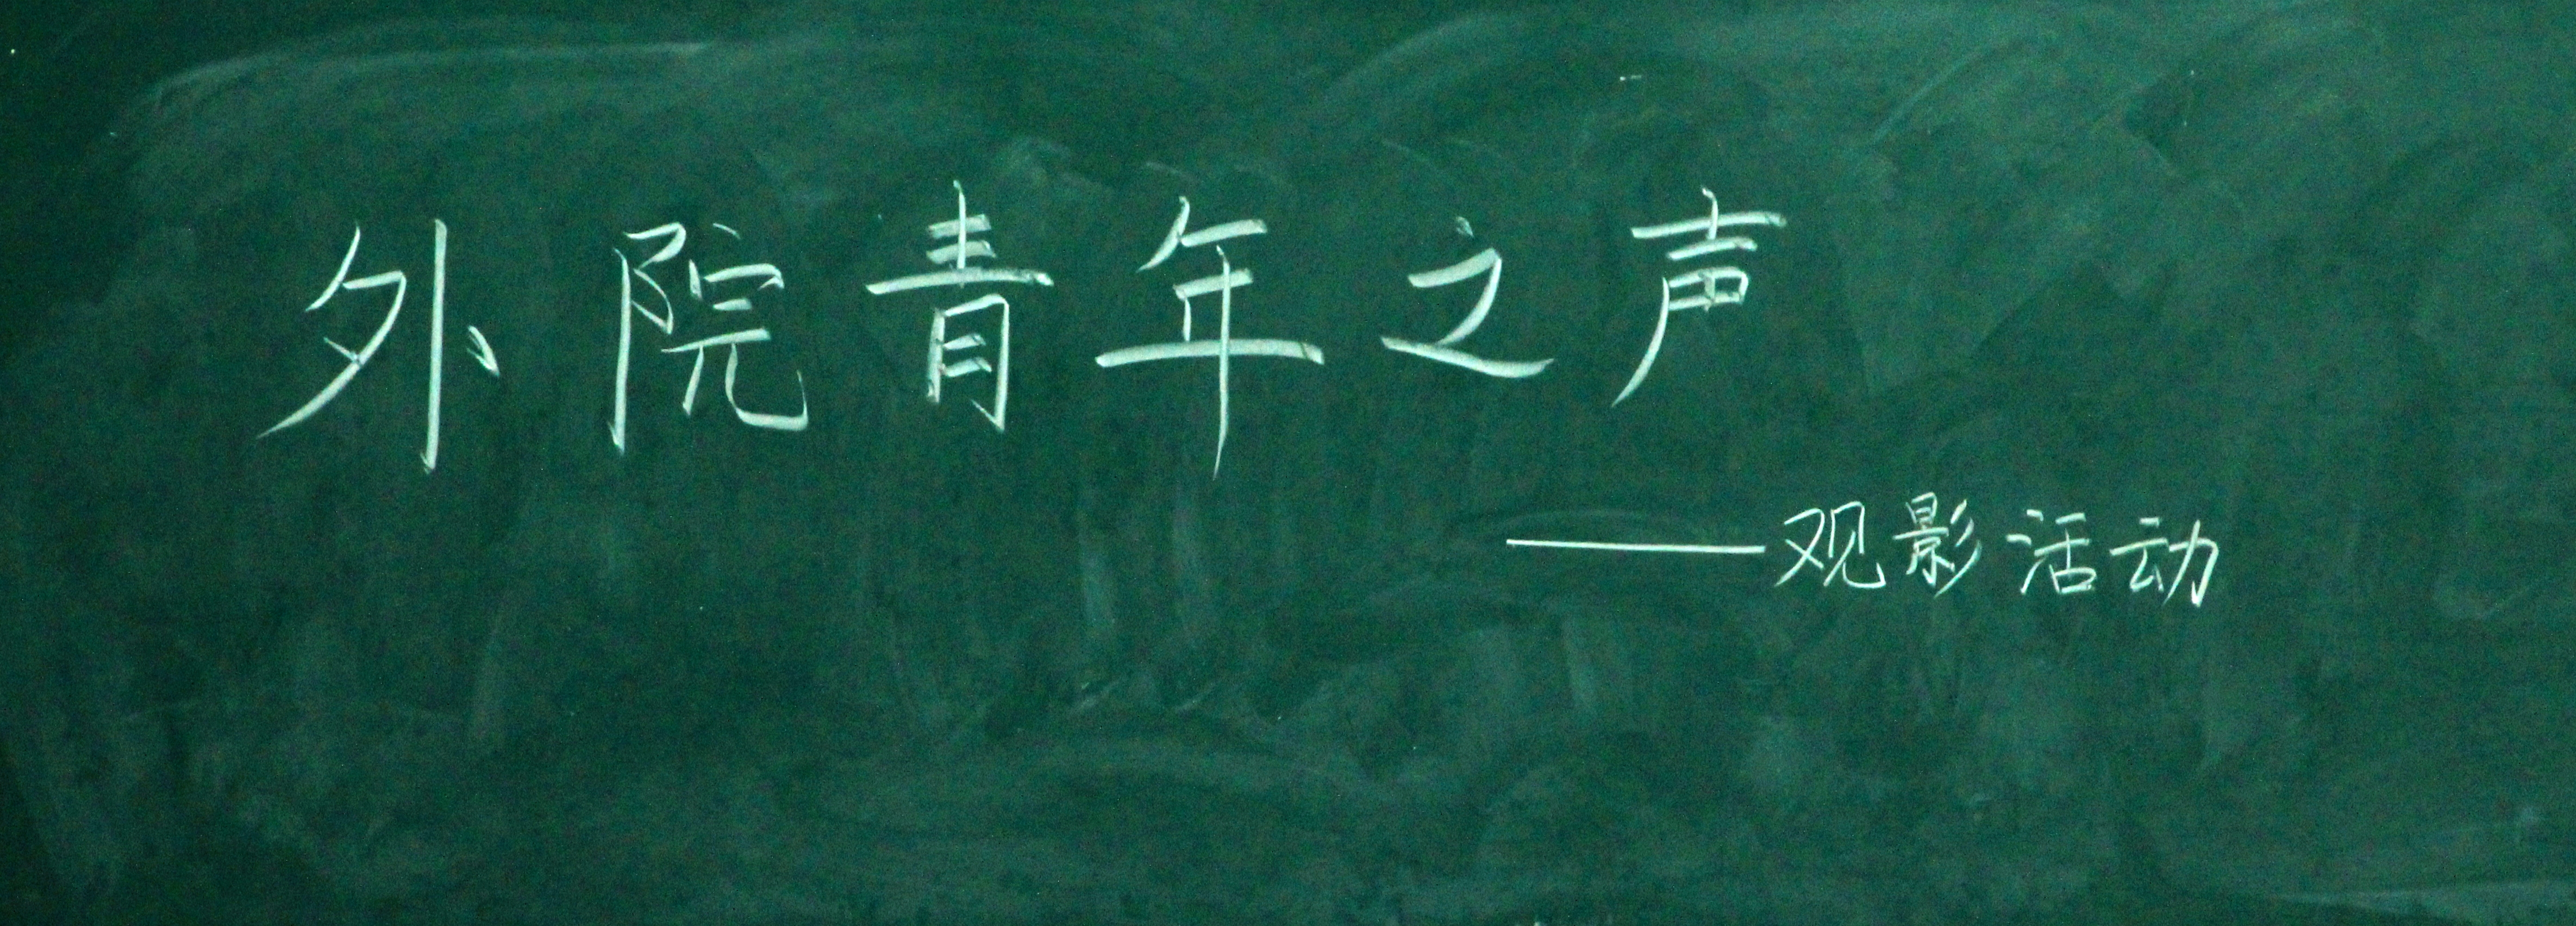 外院青年之声
——观影活动